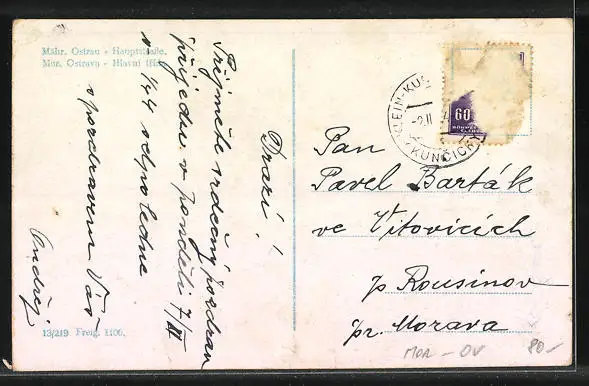 Mähr. Ostrau - Hauptstraße.
Mor. Ostrava - Hlavní třída.
Drazí!
Přijměte srdečný pozdrav
přijedu v pondělí 7/II
v 1/4 4 odpoledne
s pozdravem Váš
Ondřej
13/219 Freig. 1106.
60
KLEIN-KUN
-2.II
KUNČIČKY
Pan
Pavel Barták
ve Vítovicích
p Rousinov
pr. Morava
MOR - OV
80-